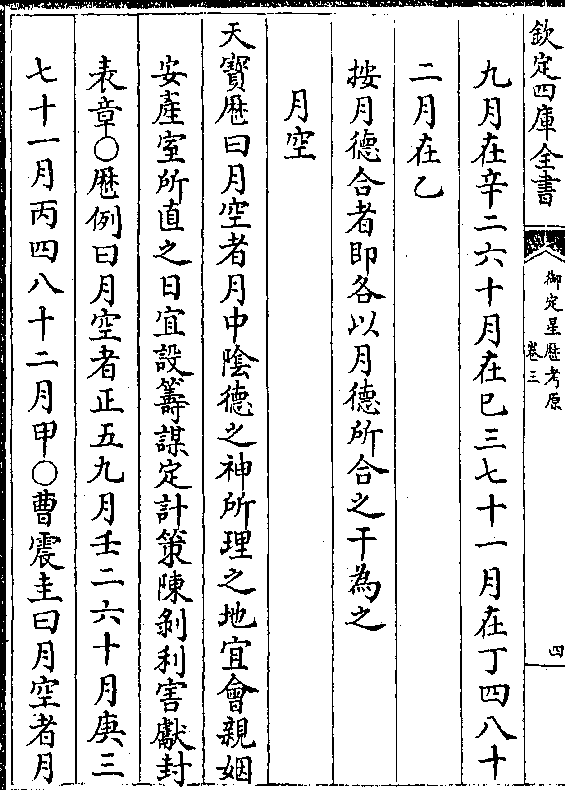 欽定四庫全書
御定星厯考原
卷三
四
九月在辛二六十月在巳三七十一月在丁四八十
二月在乙
按月德合者即各以月德所合之干為之
月空
天寳厯曰月空者月中陰德之神所理之地宜會親姻
安產室所直之日宜設籌謀定計策陳剝利害獻封
表章〇厯例曰月空者正五九月壬二六十月庚三
七十一月丙四八十二月甲〇曹震圭曰月空者月